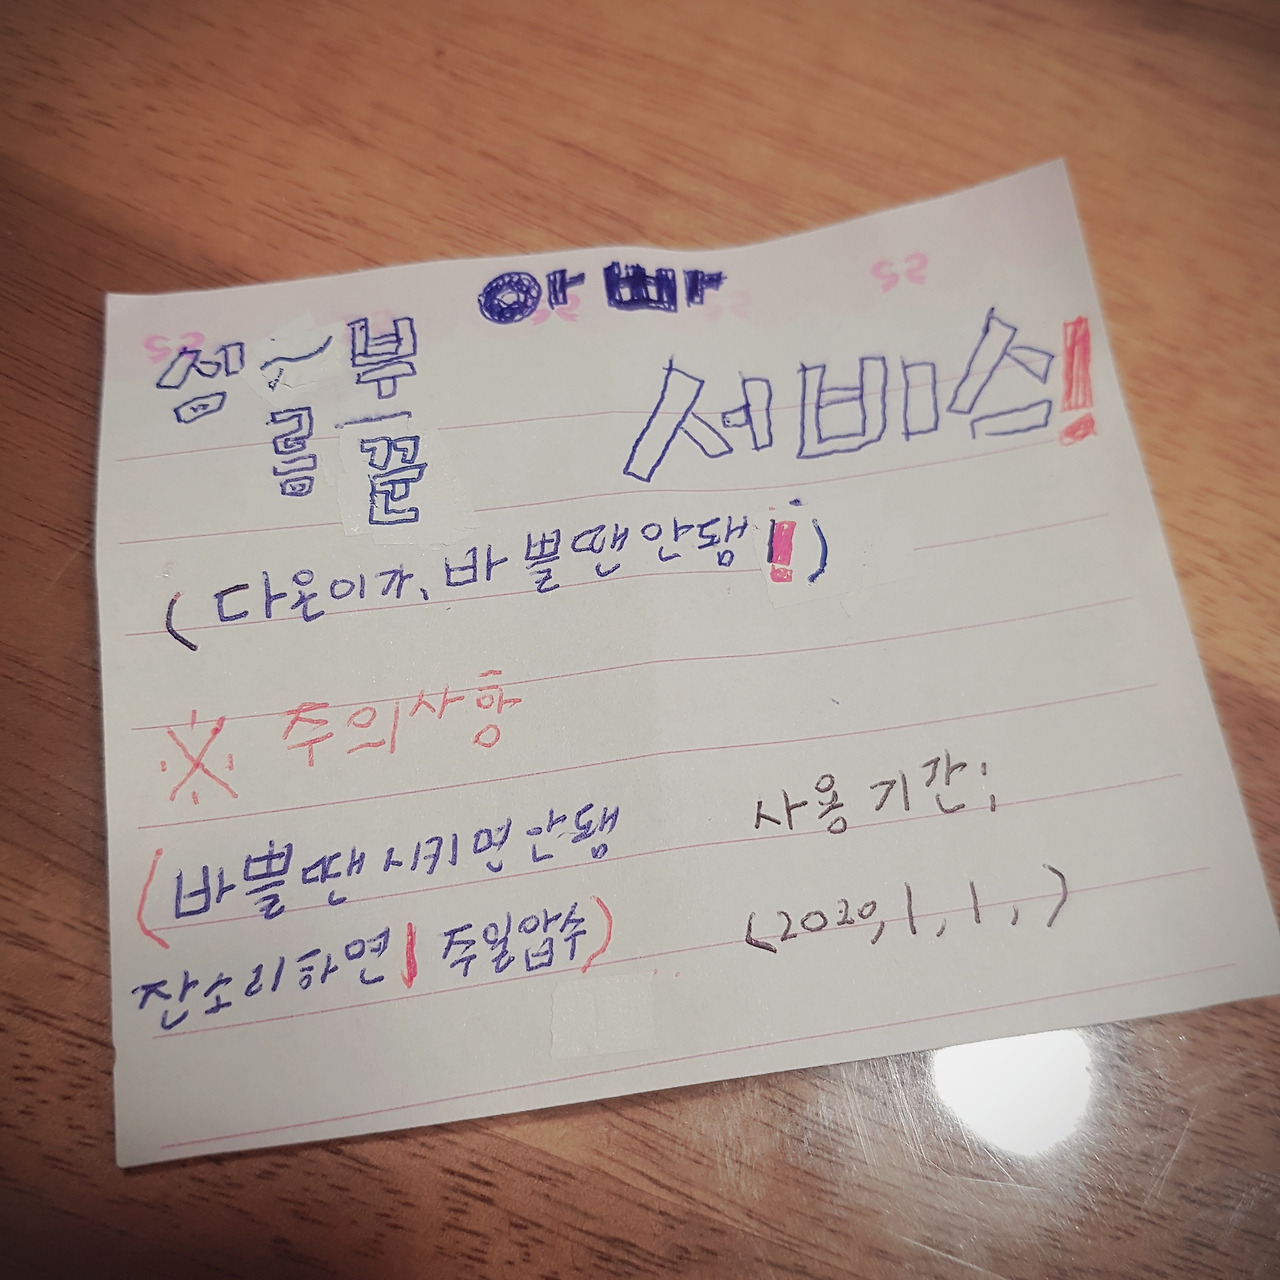 아빠
심~부
름 꾼 서비스!
(다온이가, 바쁠땐 안됌!)
※ 주의사항
(바쁠땐 시키면 안됌
잔소리하면 1주일압수)
사용기간;
(2020, 1, 1, )